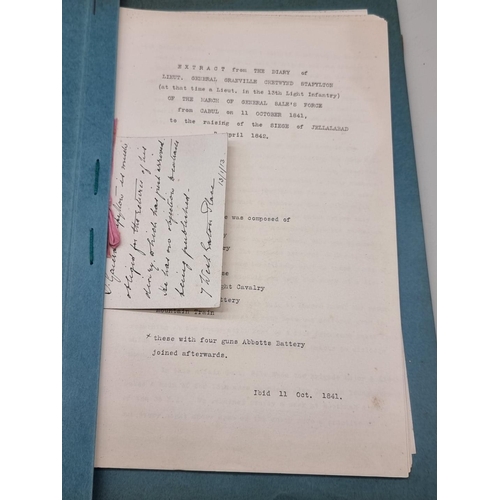 EXTRACT from THE DIARY of
LIEUT. GENERAL GRANVILLE CHETWYND STAPYLTON
(at that time a Lieut. in the 13th Light Infantry)
OF THE MARCH OF GENERAL SALE'S FORCE
from CABUL on 11 OCTOBER 1841,
to the raising of the SIEGE of JELLALABAD
April 1842.
was composed of
Cavalry
Mountain Train
* these with four guns Abbotts Battery
joined afterwards.
Ibid 11 Oct. 1841.
General Stapylton is much
obliged for the return of his
diary, which has just arrived
He has no objection to extracts
being published.
7 West Eaton Place